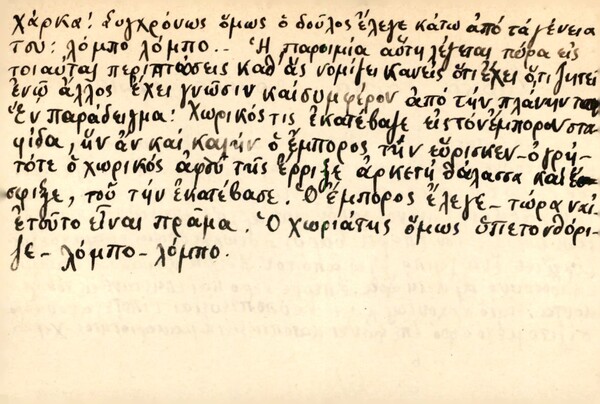 χάρκα! Συγχρόνως ὅμως ὁ δοῦλος ἔλεγε κάτω ἀπό τά γένεια
του: λόμπο λόμπο.. Ἡ παροιμία αὕτη λέγεται τώρα εἰς
τοιαύτας περιπτώσεις καθ' ἅς νομίζει κανείς ὅτι ἔχει ὅτι ζητεῖ
ἐνῷ ἄλλος ἔχει γνῶσιν καί συμφέρον ἀπό τήν πλάνην του
Ἕν παράδειγμα: Χωρικός τις ἐκατέβασε εἰς τόν ἔμπορον στα
φίδα, ἥν ἄν καί καλήν ὁ ἔμπορος τήν εὕρισκεν - ὀγρή -
τότε ὁ χωρικός ἀφοῦ τῆς ἔρριξε ἀρκετή θάλασσα καί
σφιξε, τοῦ τήν ἐκατέβασε. Ὁ ἔμπορος ἔλεγε - τώρα ναί
ἐτοῦτο εἶναι πρᾶμα. Ὁ χωριάτης ὅμως ὑπετονθόρι-
ζε - λόμπο - λόμπο.